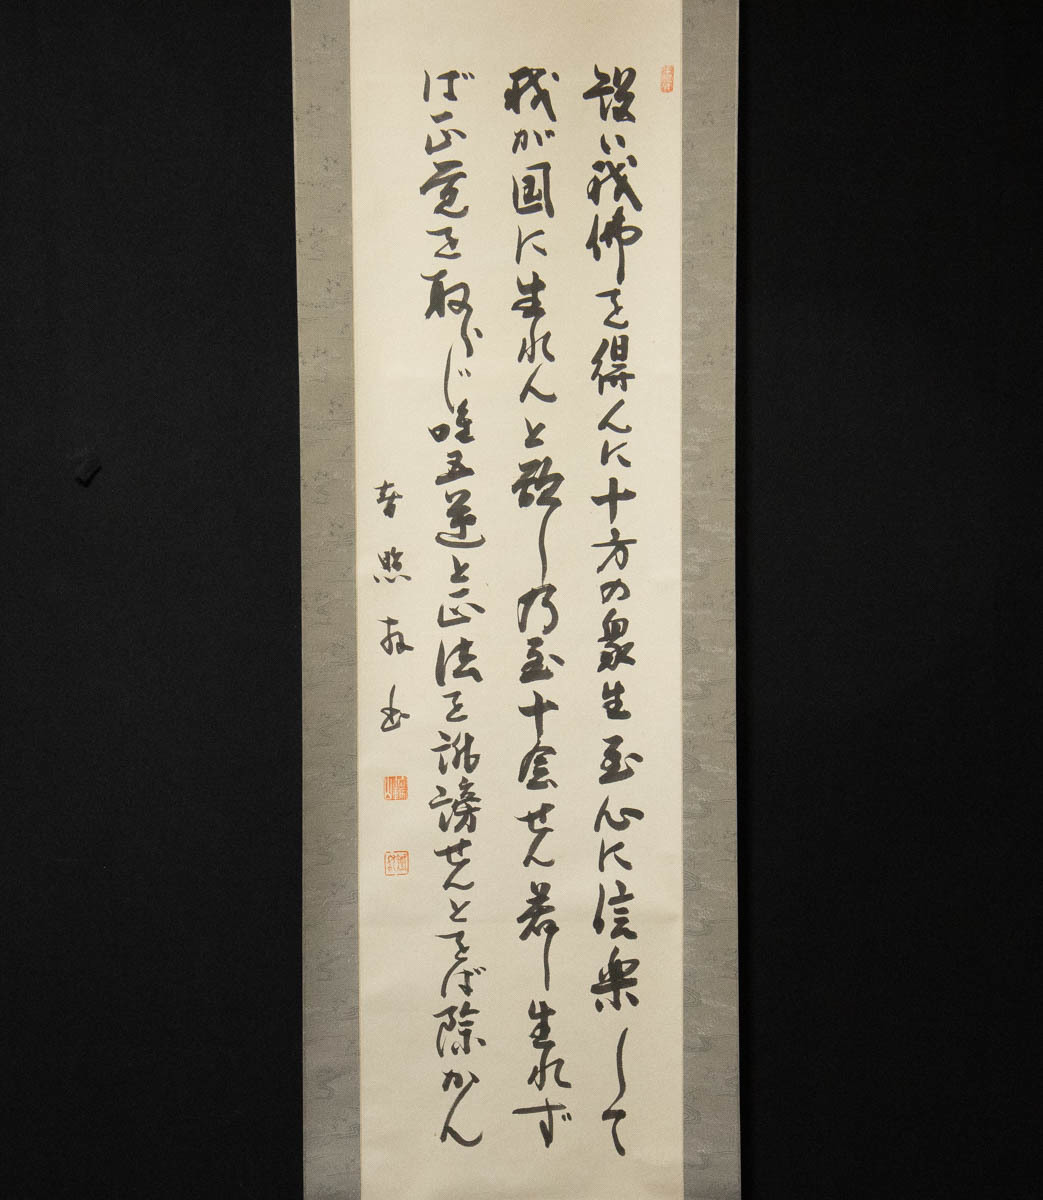 設い我佛を得んに十方の衆生至心に信楽して
我が国に生れんと欲し乃至十念せん若し生れず
ば正覚を取らじ唯五逆と正法を誹謗せんとをば除かん
照 書